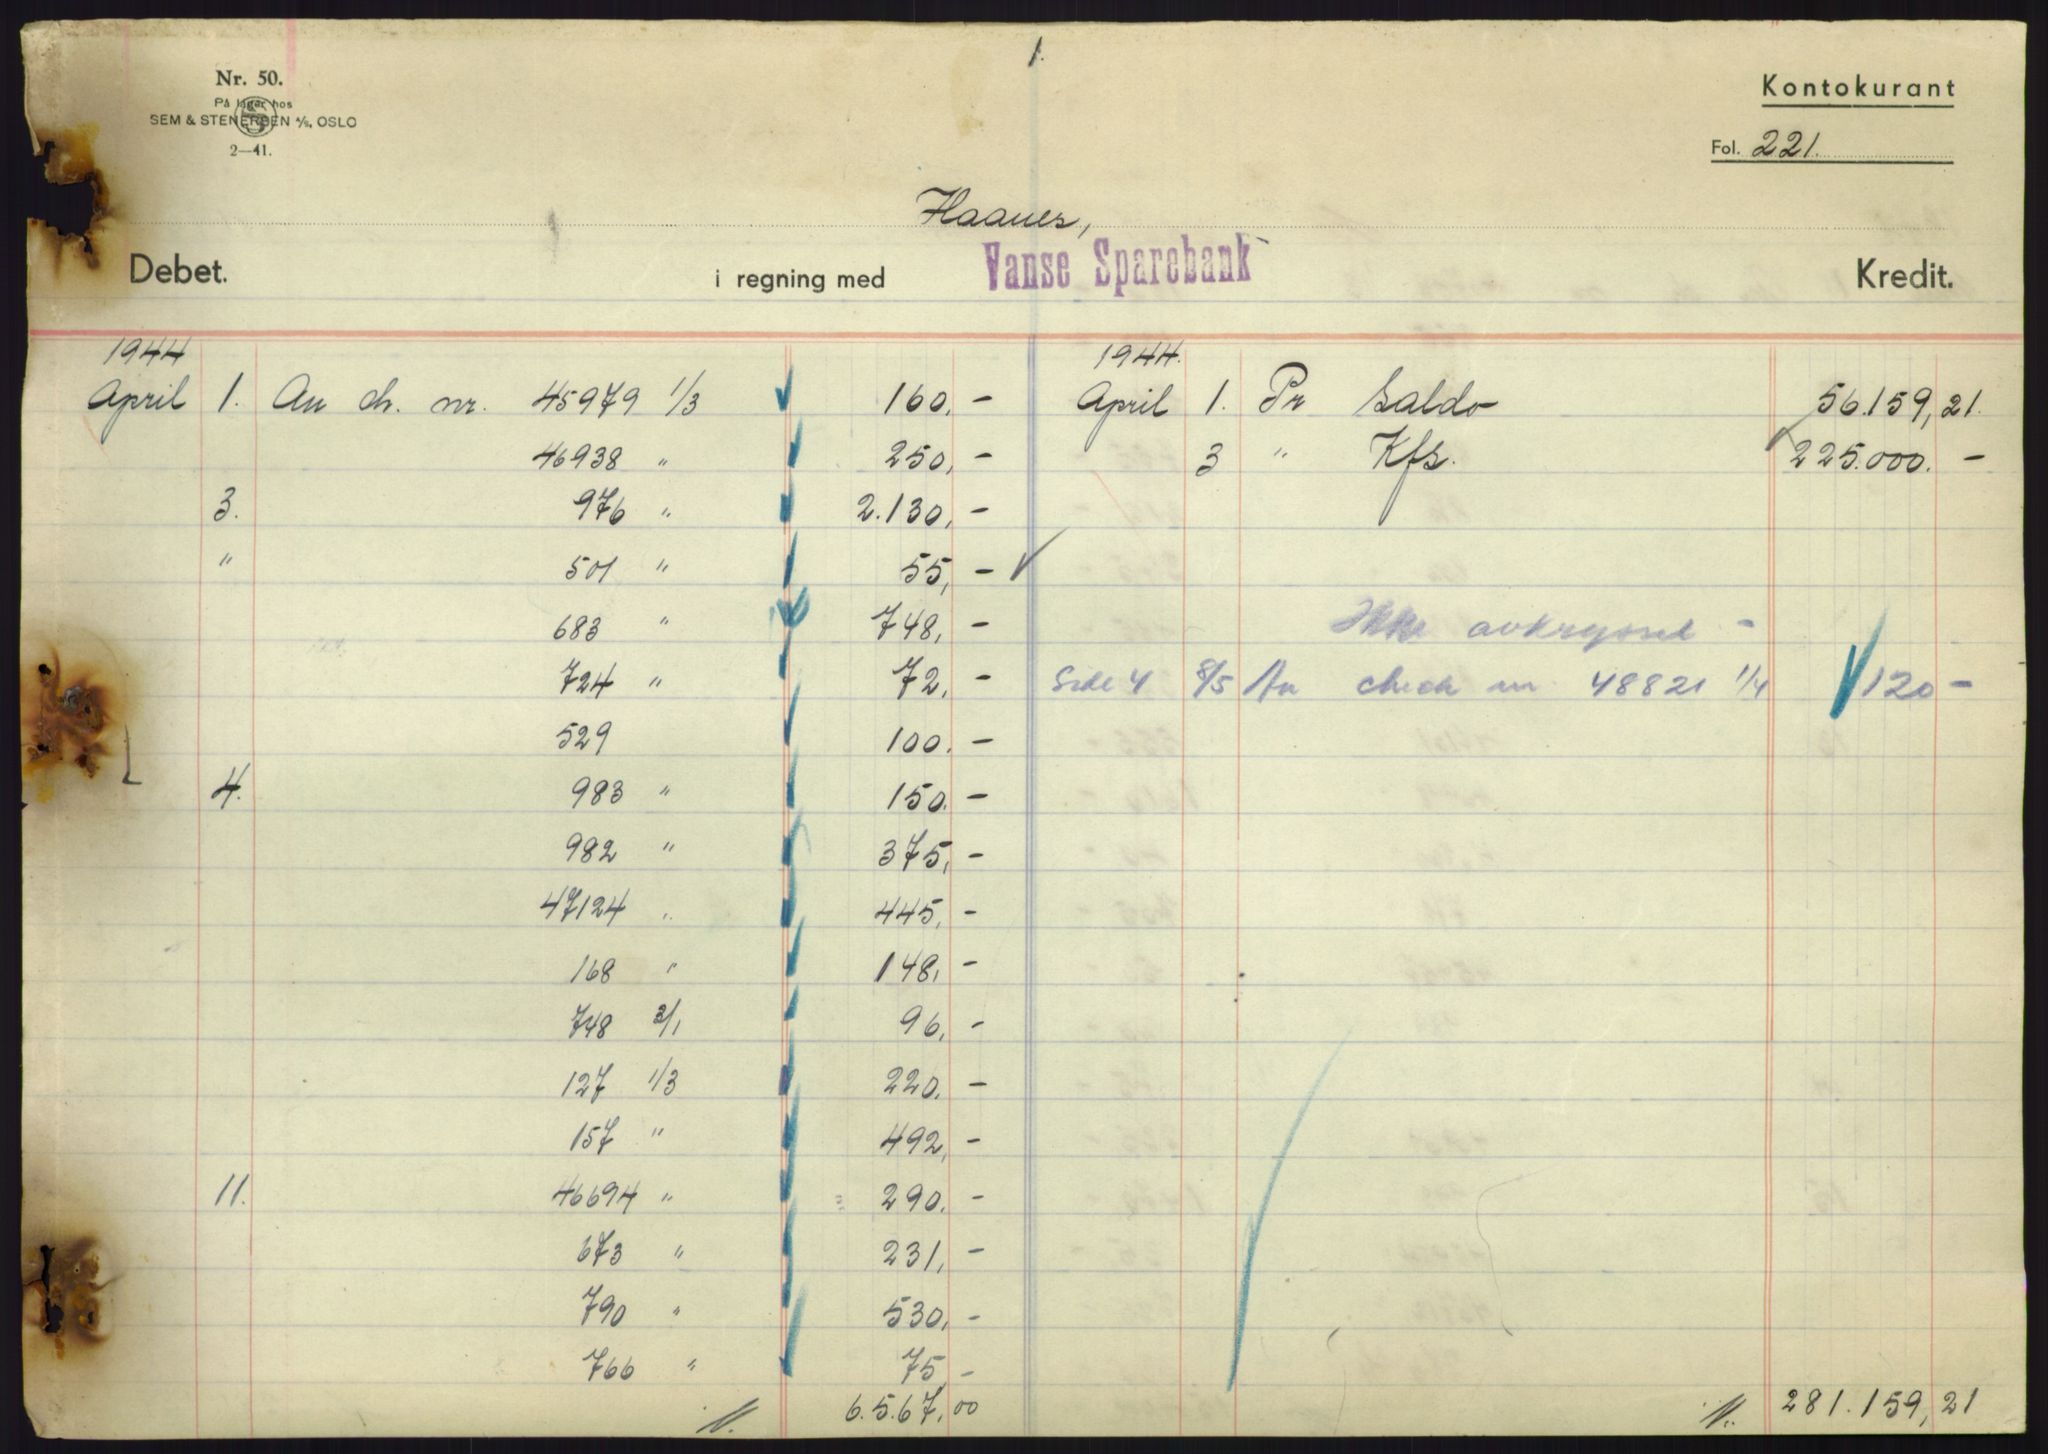 1.
Nr. 50.
På lager hos
SEM & STENERSEN A/S, OSLO
2—41.
Kontokurant
Fol. 221.
Haanes,
Debet. i regning med Vanse Sparebank Kredit.
1944 1944.
April 1. An ch. nr. 45979 1/3 160,- April 1. Pr Saldo 56.159,21.
46938 " 250,- 3 " Kfs. 225.000.-
3. 976 " 2.130,-
" 501 " 55,-
683 " 748,- Ikke avkrysset -
724 " 72,- Side 4 8/5 An check nr. 48821 1/4 120-
529 100.-
4. 983 " 150.-
982 " 375,-
47124 " 445,-
168 " 148,-
748 2/1 96,-
127 1/3 220.-
157 " 492,-
11. 46694 " 290.-
673 " 231,-
790 " 530,-
766 " 75,-
6.567,00 281.159,21